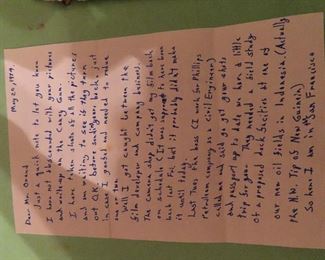 May 29, 1979
Dear Mr. Conrad
Just a quick note to let you know
I have not absconded with your pictures
and write up on the Candy Gun.
I have the slides and all the pictures
and am waiting to see if they turn
out O.K. before sending your back just
in case I goofed and needed to redo
one or two.
Well I got caught between the
film developer and company business.
The camera shop didn't get my film back
on schedule (It was supposed to have been
back last Fri. but it probably didn't make
it until today).
Last Thurs. the boss (I work for Phillips
Petroleum company as a Civil Engineer)
called me and said go get your shots
and passport up to date. We have a little
trip for you. They needed a field study
of a proposed dock facilities at one of
our new oil fields in Indonesia (Actually
the N.W. Tip of New Guinea)
So here I am in San Francisco